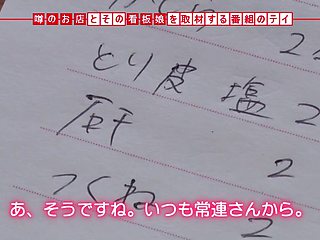 噂のお店とその看板娘を取材する番組のテイ
2
とり皮 塩 2
肝 2
つくね 2
あ、そうですね。いつも常連さんから。